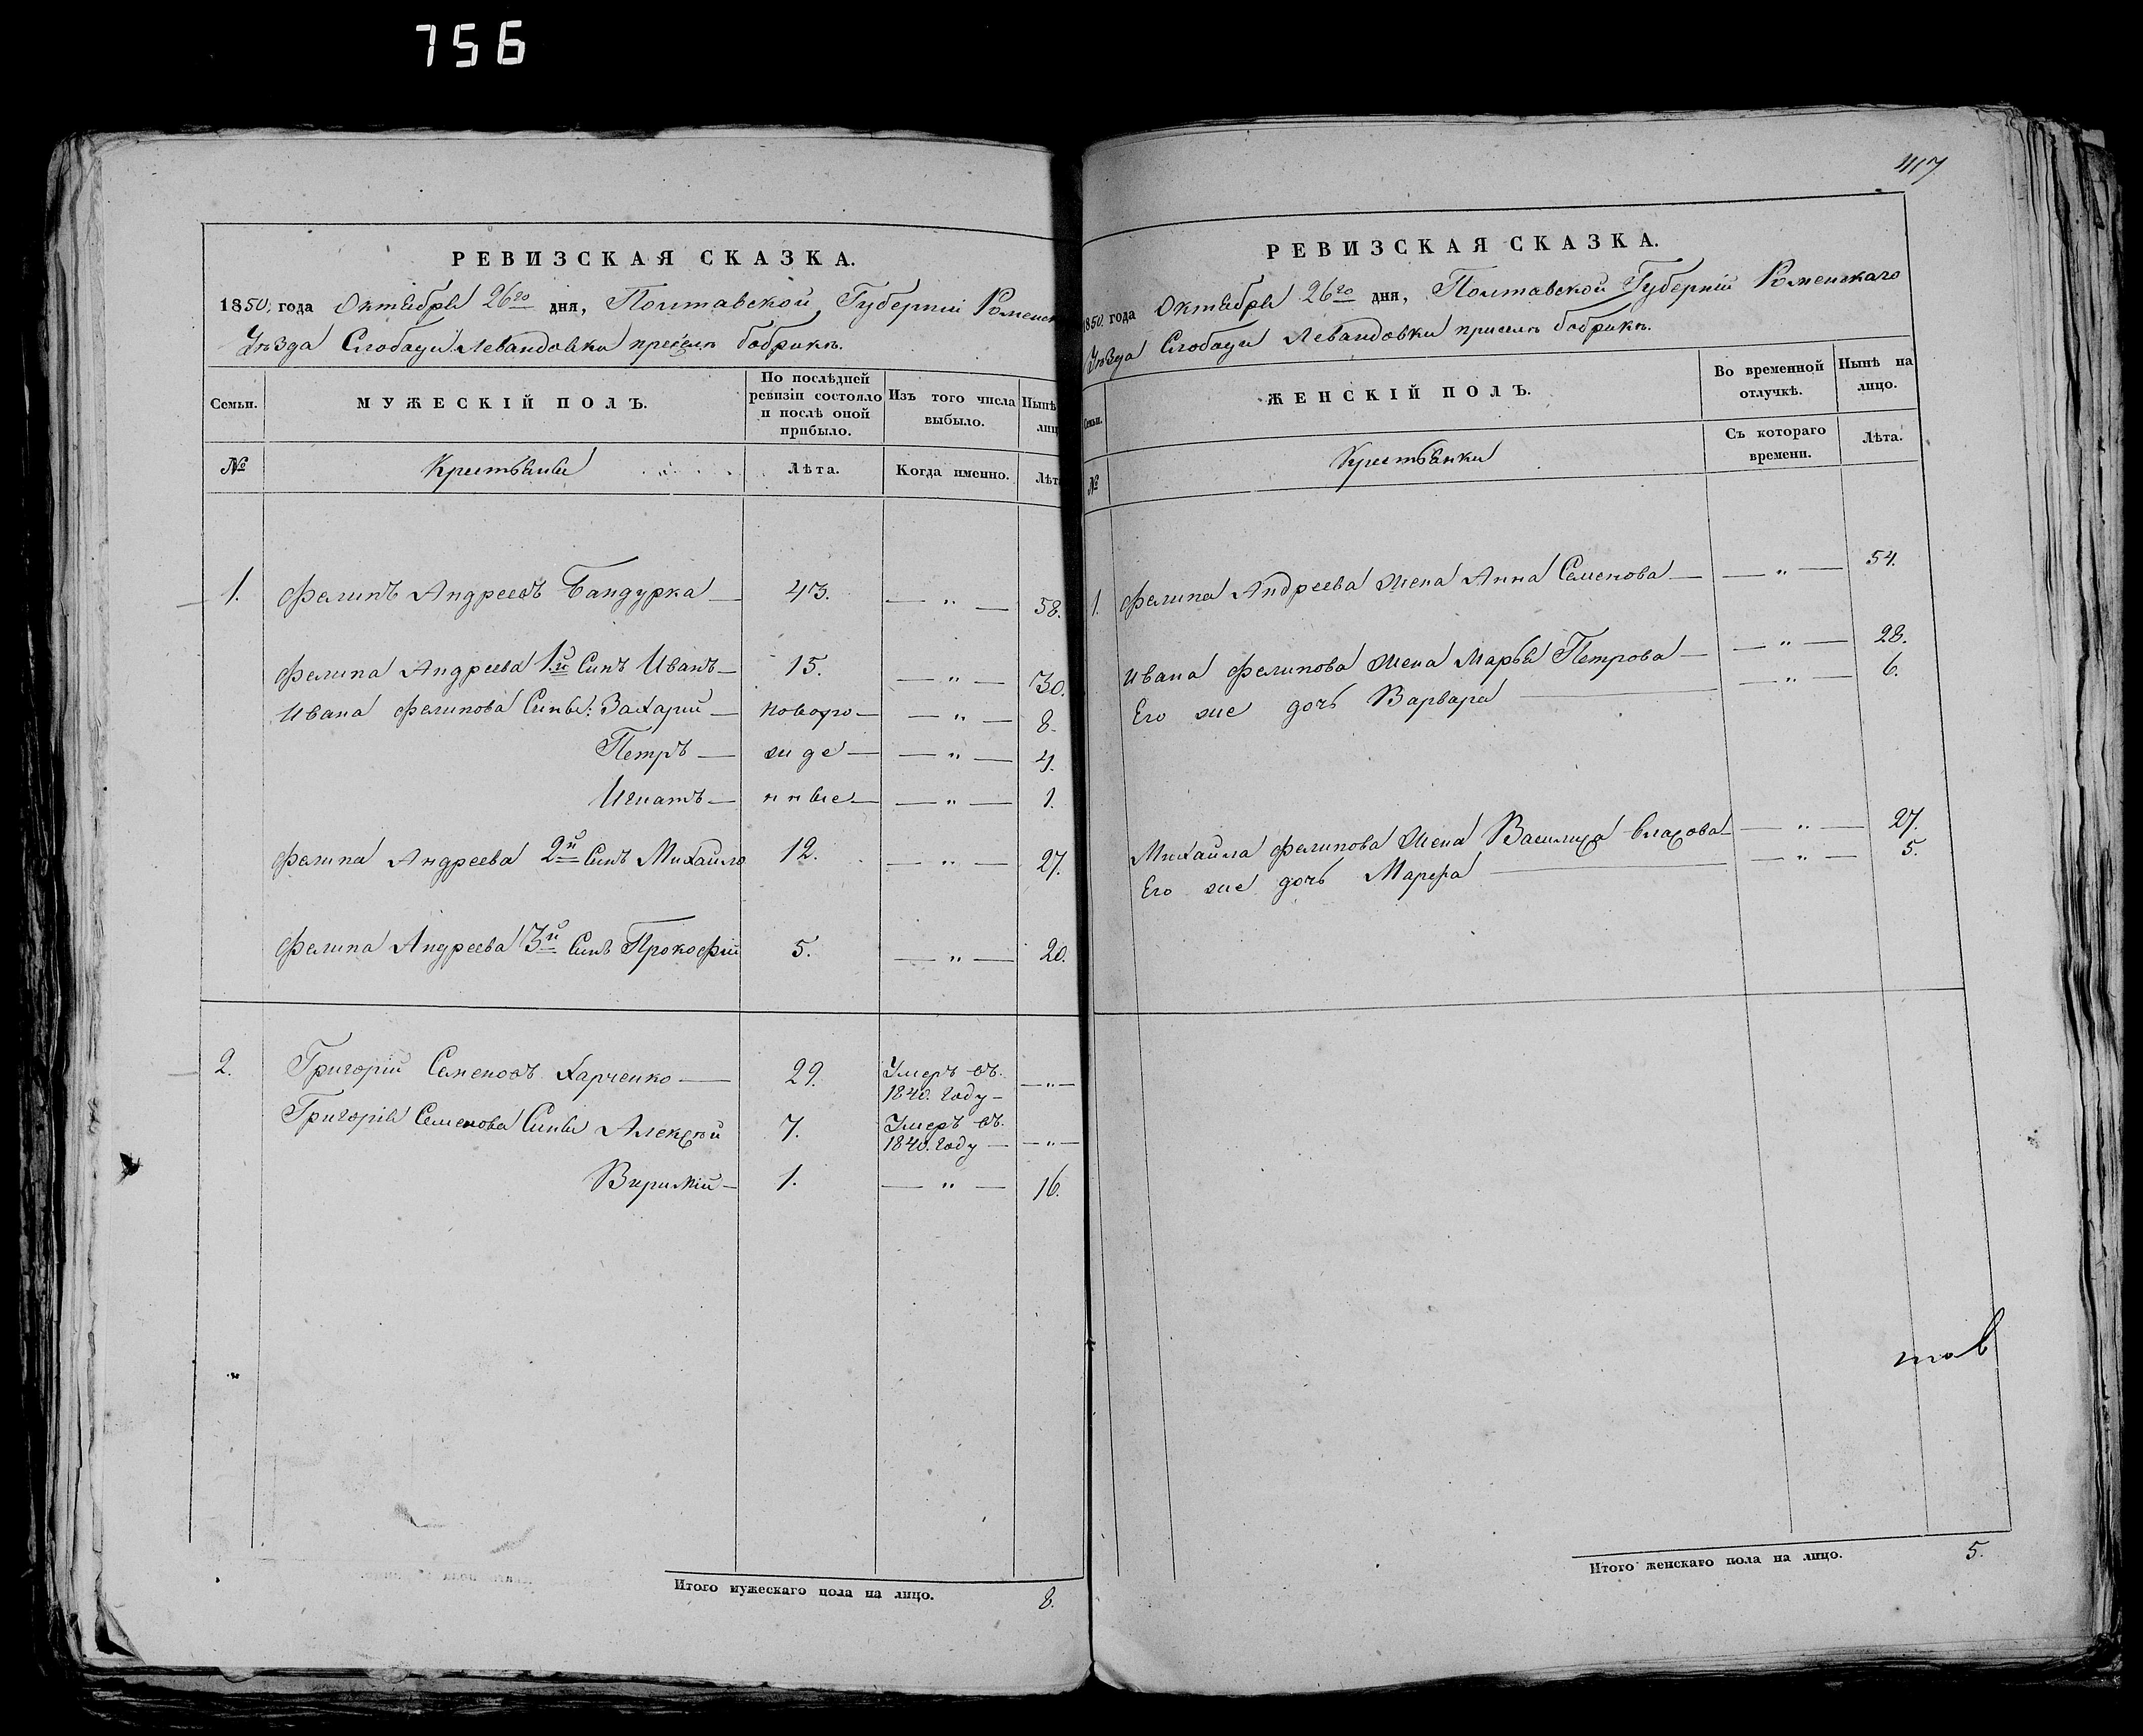 756
РЕВИЗСКАЯ СКАЗКА.
1850. года Октября 26го дня, Полтавской Губерніи Роменск
Уѣзда Слободи Левандовки
Семьи.
МУЖЕСКІЙ ПОЛЪ.
По послѣдней ревизіи состояло и послѣ оной прибыло.
Изъ того числа выбыло.
Нынѣ лиц
№
Крестьяне
Лѣта.
Когда именно.
Лѣт
1. Фелипъ Андреевъ Бандурка — 43. — „ — 58.
Фелипа Андреева 1й Синъ Иванъ — 15. — „ — 30.
Ивана Фелипова Сины: Захарий — новоро — — „ — 8.
Петръ — жде — — „ — 4.
Игнатъ — нные — — „ — 1.
Фелипа Андреева 2й Синъ Михайло 12. — „ — 27.
Фелипа Андреева 3й Синъ Прокофій 5. — „ — 20.
2. Григорій Семеновъ Харченко — 29. Умеръ въ 1840. году — — „ —
Григорія Семенова Сины Алексѣй 7. Умеръ въ 1840. году — — „ —
1. — „ — 16.
Итого мужескаго пола на лицо. 8.
417
РЕВИЗСКАЯ СКАЗКА.
1850. года Октября 26го дня, Полтавской Губерніи Роменскаго
Уѣзда Слободи Левандовки
Семьи.
ЖЕНСКІЙ ПОЛЪ.
Во временной отлучкѣ.
Нынѣ на лицо.
№
Крестьянки
Съ котораго времени.
Лѣта.
1. Фелипа Андреева жена Анна Семенова — — „ — 54.
Ивана Фелипова жена Марья Петрова — — „ — 28.
Его же дочь Варвара — — „ — 6.
Михайла Фелипова жена Василиса Власова — — „ — 27.
Его же дочь Марфа — — „ — 5.
Итого женскаго пола на лицо. 5.